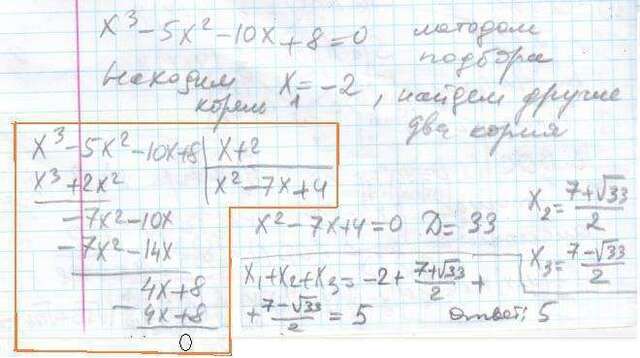 x³ - 5x² - 10x + 8 = 0 методом
подбора
находим x₁ = -2, найдем другие
корень два корня
x³ - 5x² - 10x + 8 | x + 2
x³ + 2x² x² - 7x + 4
- 7x² - 10x
- 7x² - 14x
4x + 8
- 4x + 8
0
x² - 7x + 4 = 0 D = 33
x₂ = (7 + √33)/2
x₃ = (7 - √33)/2
x₁ + x₂ + x₃ = -2 + (7 + √33)/2 +
+ (7 - √33)/2 = 5 ответ: 5